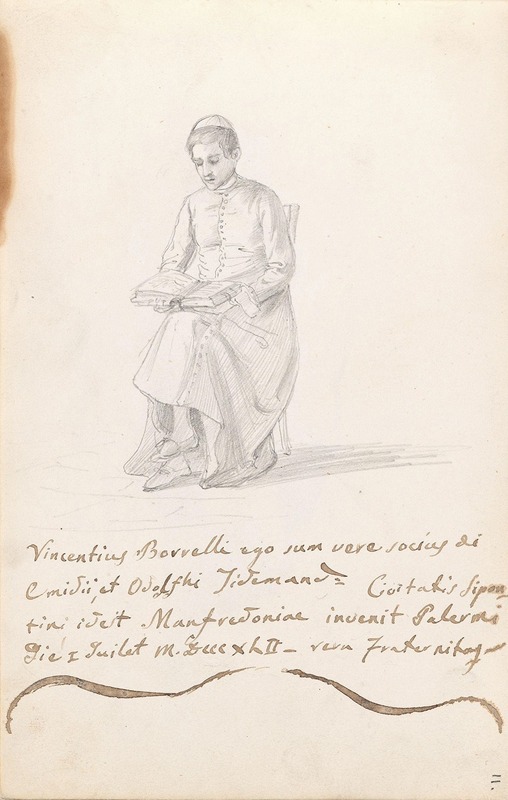 Vincentius Borrelli ego sum vere socius di
Emidii, et Odolfhi Tidemand Civitatis Sipon
tini idest Manfredoniae invenit Palermi
Die I Juilet M. Dccc XLII – vera Fraternitas